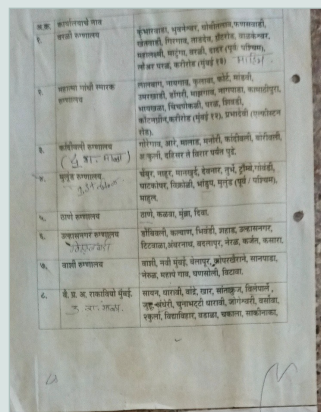 अ.क्र. कार्यालयाचे नाव
१. वरळी रुग्णालय
कुंभारवाडा, भुवनेश्वर, गोखीवलाल, फणसवाडी,
खेतवाडी, गिरगाव, ताडदेव, ग्रँटरोड, वाळकेश्वर,
महालक्ष्मी, माटुंगा, वरळी, दादर (पूर्व/ पश्चिम),
लोअर परळ, करीरोड (मुंबई १३) माहिम
२. महात्मा गांधी स्मारक
रुग्णालय
लालबाग, नायगाव, कुलाबा, कोर्ट, मांडवी,
उमरखाडी, डोंगरी, माझगाव, नागपाडा, कामाठीपुरा,
भायखळा, चिंचपोकळी, परळ, शिवडी,
कॉटनग्रीन, करीरोड (मुंबई १२), प्रभादेवी (एल्फीस्टन
रोड).
३. कांदीवली रुग्णालय
गोरेगाव, आरे, मालाड, मनोरी, कांदीवली, बोरीवली,
दहिसर ते विरार पर्यंत पुढे.
४. मुलुंड रुग्णालय
चेंबूर, नाहूर, मानखुर्द, देवनार, तुर्भे, ट्रॉम्बे, गोवंडी,
घाटकोपर, विक्रोळी, भांडुप, मुलुंड (पूर्व / पश्चिम),
माहुल.
५. ठाणे रुग्णालय
ठाणे, कळवा, मुंब्रा, दिवा.
६. उल्हासनगर रुग्णालय
डोंबीवली, कल्याण, भिवंडी, शहाड, उल्हासनगर,
टिटवाळा, अंबरनाथ, बदलापूर, नेरळ, कर्जत, कसारा.
७. वाशी रुग्णालय
वाशी, नवी मुंबई, बेलापूर, कोपरखैराने, सानपाडा,
नेरुळ, महापे गाव, घणसोली, दिघा.
८. वै. प्र. अ. राकावियो मुंबई.
सायन, धारावी, बांद्रे, खार, सांताक्रुज, विलेपार्ले,
अंधेरी, चुनाभट्टी धारावी, जोगेश्वरी, वर्सोवा,
कुर्ला, विद्याविहार, वडाळा, चकाला, साकीनाका,